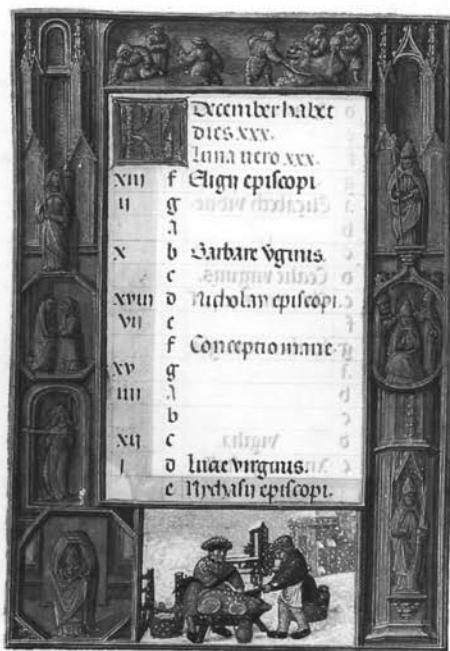 KL December habet
dies xxx.
luna vero xxx.
xiij f Eligij episcopi
ij g
A
x b Barbare virginis.
c
xviij d Nicholay episcopi.
vij e
f Conceptio marie.
xv g
iiij A
b
xij c
j d lucie virginis.
e Nychasij episcopi.